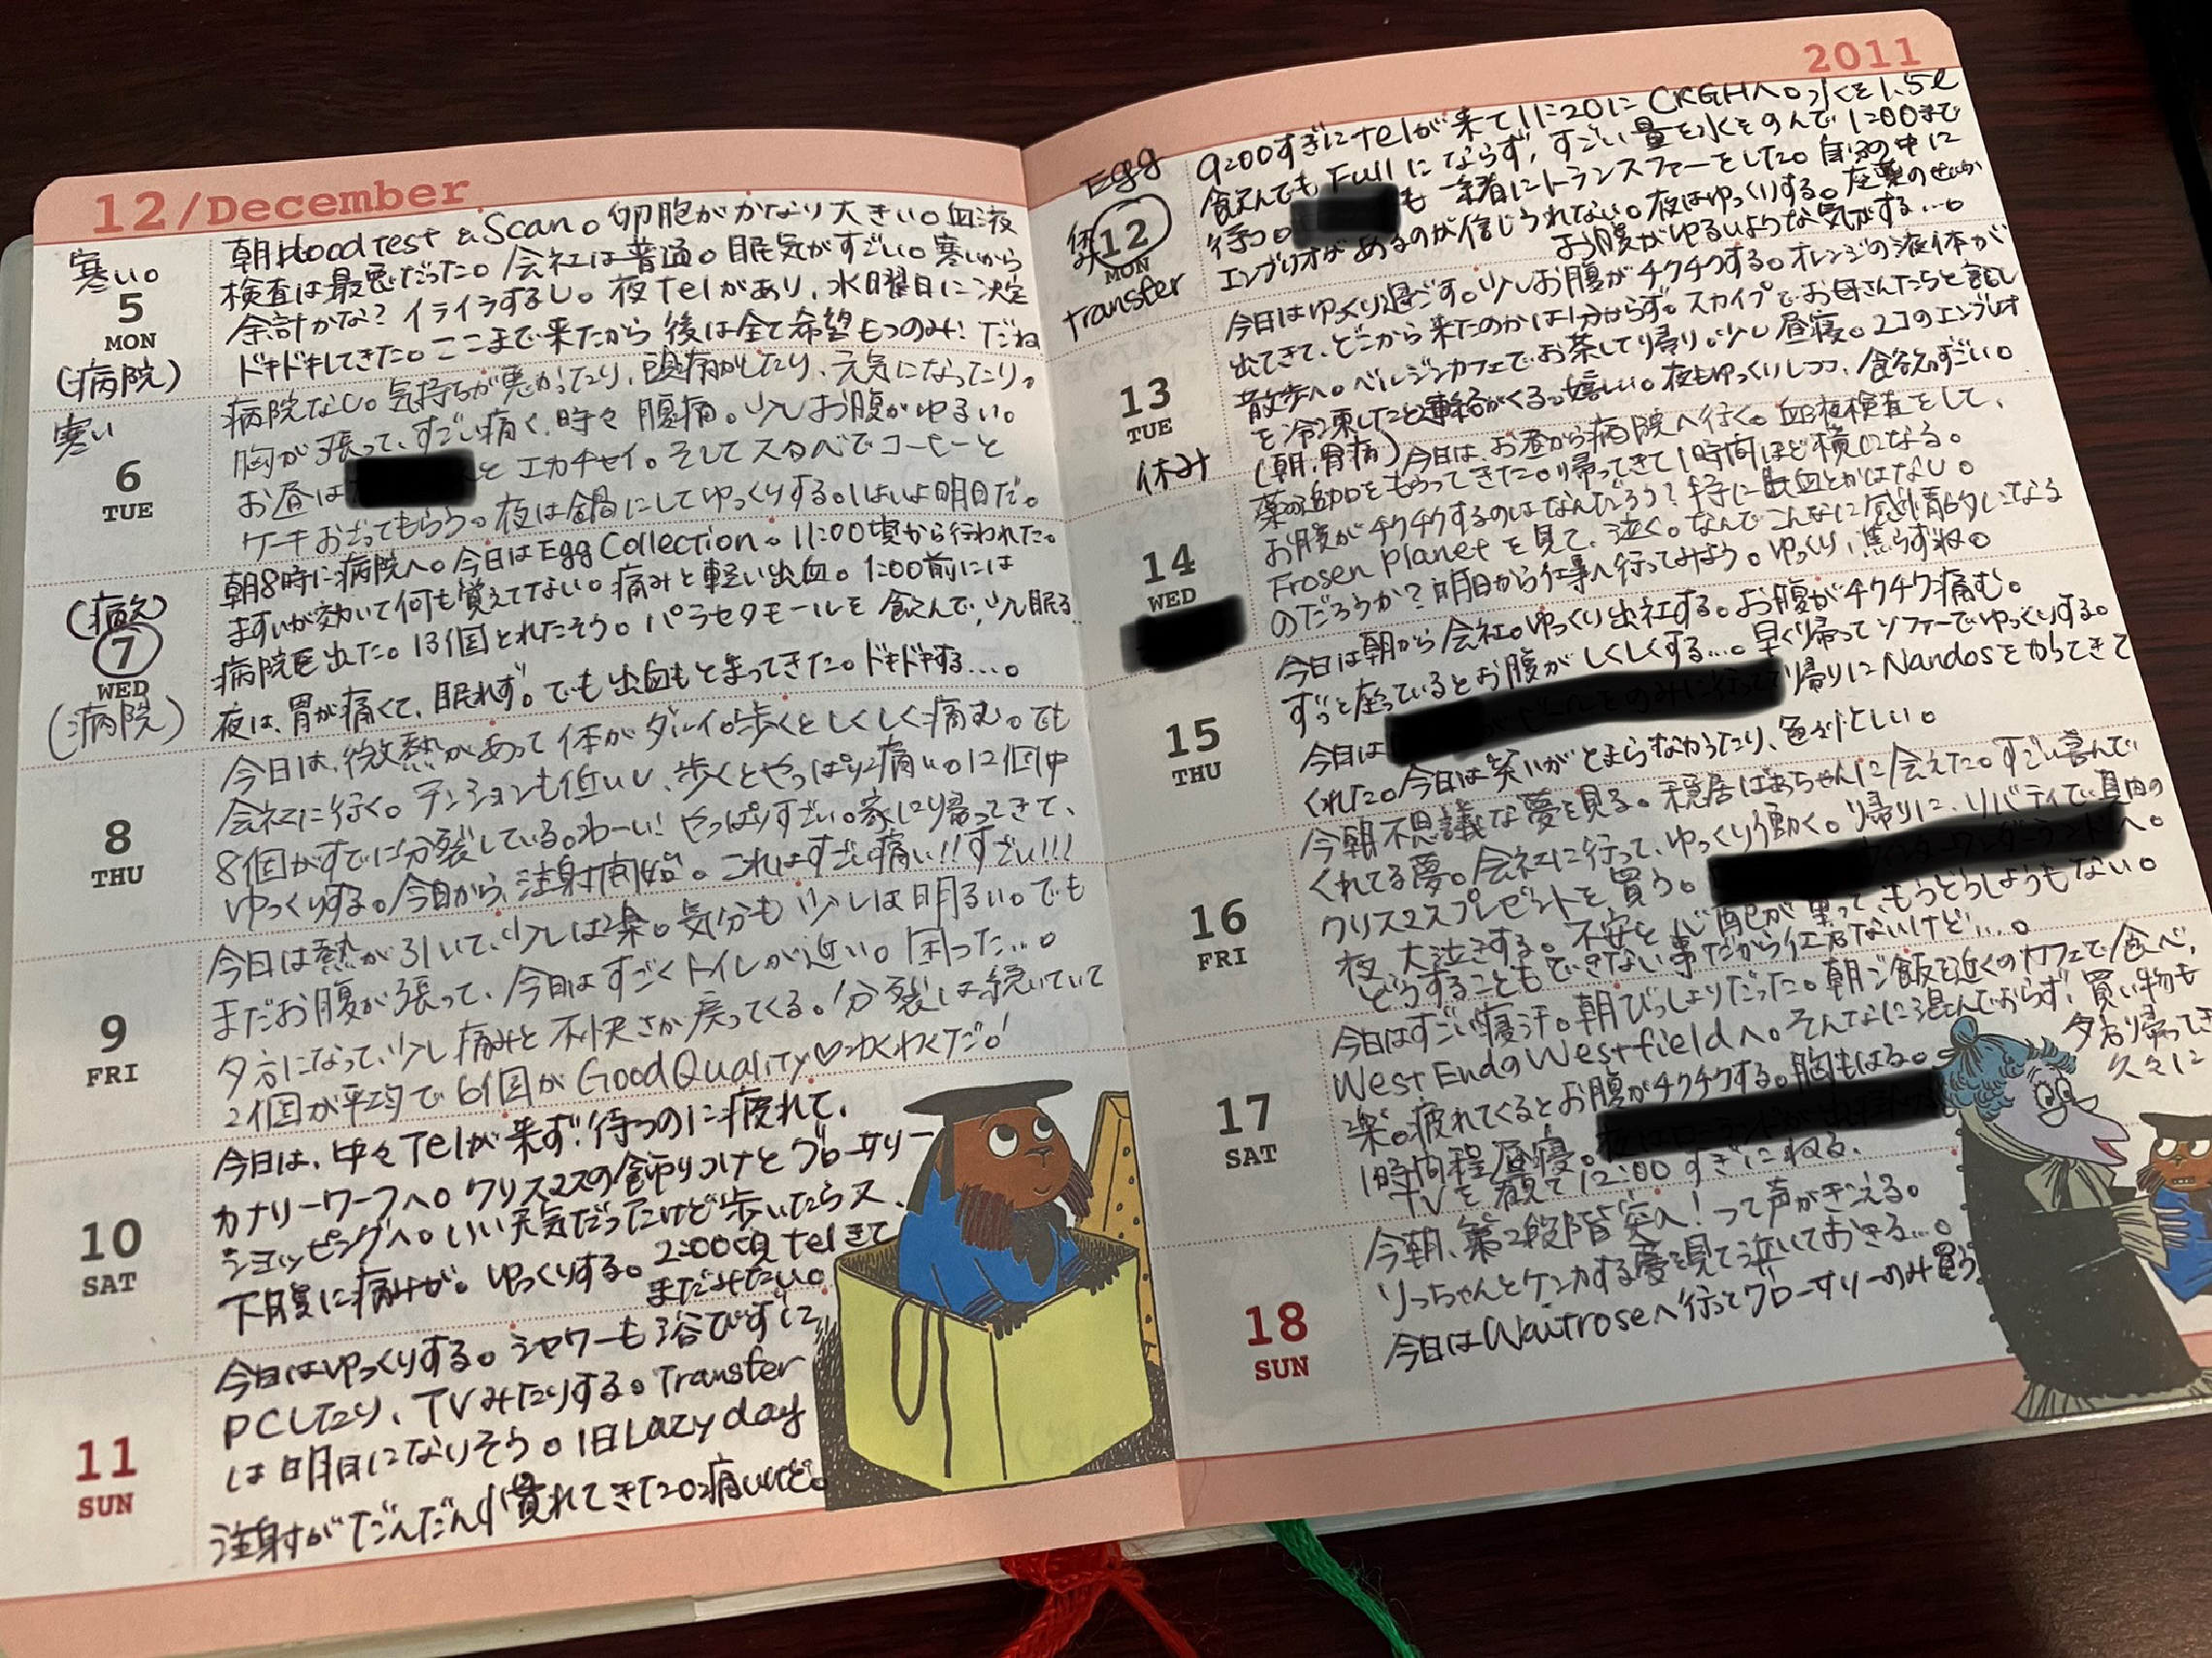 12/December
寒い。
5
MON
(病院)
朝blood test & Scan。卵胞がかなり大きい。血液
検査は最悪だった。会社は普通。眠気がすごい。寒いから
余計かな? イライラするし。夜Telがあり、水曜日に決定
ドキドキしてきた。ここまで来たから後は全て希望もつのみ! だね
寒い
6
TUE
病院なし。気持ちが悪かったり、頭痛がしたり、元気になったり。
胸が張って、すごい痛く、時々腹痛。少しお腹がゆるい。
お昼は と エカチャイ。そしてスタバでコーヒーと
ケーキおごってもらう。夜は鍋にしてゆっくりする。いよいよ明日だ。
(病院)
7
WED
(病院)
朝8時に病院へ。今日はEgg Collection。11:00頃から行われた。
ますいが効いて何も覚えてない。痛みと軽い出血。1:00前には
病院を出た。13個とれたそう。パラセタモールを飲んで、少し眠る。
夜は、胃が痛くて、眠れず。でも出血もとまってきた。ドキドキする…。
8
THU
今日は、微熱があって体がダルイ。歩くとしくしく痛む。でも
会社に行く。テンションも低いし、歩くとやっぱり痛い。12個中
8個がすでに分裂している。わーい! やっぱりすごい。家に帰ってきて、
ゆっくりする。今日から、注射開始。これはすごい痛い!!すごい!!!
9
FRI
今日は熱が引いて、少しは楽。気分も少しは明るい。でも
まだお腹が張って、今日はすごくトイレが近い。困った…。
夕方になって、少し痛みと不快さが戻ってくる。分裂は続いていて
2個が平均で6個がGood Quality♡わくわくだ!
10
SAT
今日は、中々Telが来ず!待つのに疲れて、
カナリーワーフへ。クリスマスの飾りつけとグローサリー
ショッピングへ。いい天気だったけど歩いたらス、
下腹に痛みが。ゆっくりする。2:00頃telきて
まだみたい。
11
SUN
今日はゆっくりする。シャワーも浴びずに
PCしたり、TVみたりする。Transfer
は明日になりそう。1日Lazy day
注射がだんだん慣れてきた。痛いけど。
2011
Egg
休み
12
MON
transfer
9:00すぎにtelが来て11:20にCRGHへ。水を1.5ℓ
飲んでもFullにならず、すごい量を水をのんで1:00まで
待つ。 も一緒にトランスファーをした。自分の中に
エンブリオがあるのが信じられない。夜はゆっくりする。座薬のせいか
お腹がゆるいような気がする…。
13
TUE
休み
今日はゆっくり過ごす。少しお腹がチクチクする。オレンジの液体が
出てきて、どこから来たのかは分からず。スカイプでお母さんたちと話し
散歩へ。ベルジンカフェでお茶して帰り。少し昼寝。2コのエンブリオ
を冷凍したと連絡がくる。嬉しい。夜もゆっくりしつつ、食欲がすごい。
14
WED
(朝、胃痛)今日は、お昼から病院へ行く。血液検査をして、
薬の追加をもらってきた。帰ってきて1時間ほど横になる。
お腹がチクチクするのはなんだろう? 特に出血とかはなし。
Frosen planetを見て、泣く。なんでこんなに感情的になる
のだろうか? 明日から仕事へ行ってみよう。ゆっくり、焦らずね。
15
THU
今日は朝から会社。ゆっくり出社する。お腹がチクチク痛む。
ずっと座っているとお腹がしくしくする…。早く帰ってソファーでゆっくりする。
今日は 帰りにNandosをかってきて
くれた。今日は笑いがとまらなかったり、忙しい。
16
FRI
今朝不思議な夢を見る。隠居ばあちゃんに会えた。すごい喜んで
くれてる夢。会社に行って、ゆっくり働く。帰りに、リバティで真由の
クリスマスプレゼントを買う。 へ。
夜、大泣きする。不安と心配が重って、もうどうしようもない。
どうすることもできない事だから仕方ないけど…。
17
SAT
今日はすごい寝汗。朝びっしょりだった。朝ご飯を近くのカフェで食べ、
West EndのWestfieldへ。そんなに混んでおらず、買い物も
楽。疲れてくるとお腹がチクチクする。胸もはる。
夕方帰ってき
久々に
1時間程昼寝。
TVを観て12:00すぎにねる。
18
SUN
今朝、第2段階突入!って声がきこえる。
りっちゃんとケンカする夢を見て泣いておきる…。
今日はWaitroseへ行ってグローサリーのみ買う。